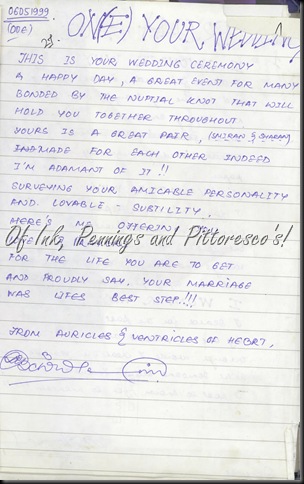 06051999
(ODE)
ON(E) YOUR WEDDING
THIS IS YOUR WEDDING CEREMONY
A HAPPY DAY, A GREAT EVENT FOR MANY
BONDED BY THE NUPTIAL KNOT THAT WILL
HOLD YOU TOGETHER THROUGHOUT
YOURS IS A GREAT PAIR,
MADE FOR EACH OTHER INDEED
I'M ADAMANT OF IT!!
SURVEYING YOUR AMICABLE PERSONALITY
AND LOVABLE - SUBTILITY.
HERE'S ME OFFERIN
Of Ink, Pennings and Pittoresco's!
FOR THE LIFE YOU ARE TO GET
AND PROUDLY SAY, YOUR MARRIAGE
WAS LIFES BEST STEP!!!
FROM AURICLES & VENTRICLES OF HEART,